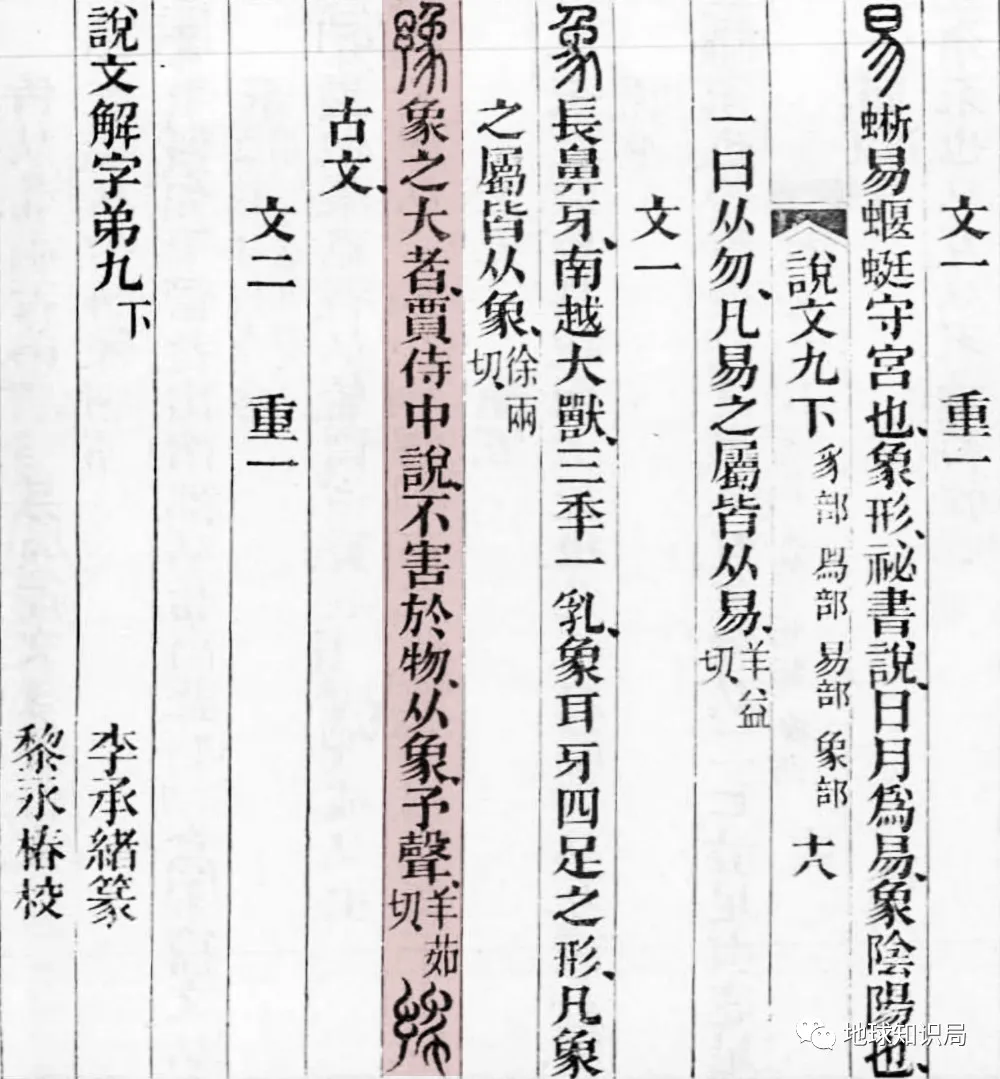 文一 重一
易 蜥易蝘蜓守宮也、象形、祕書說、日月爲易、象陰陽也、
說文九下 豸部 𤉡部 易部 象部 十八
一曰从勿、凡易之屬皆从易、羊益切、
文一
象 長鼻牙、南越大獸、三秊一乳、象耳牙四足之形、凡象
之屬皆从象、徐兩切、
豫 象之大者、賈侍中說、不害於物、从象、予聲、羊茹切、
古文、
文二 重一
說文解字弟九下
李承緒篆
黎永椿校
地球知识局